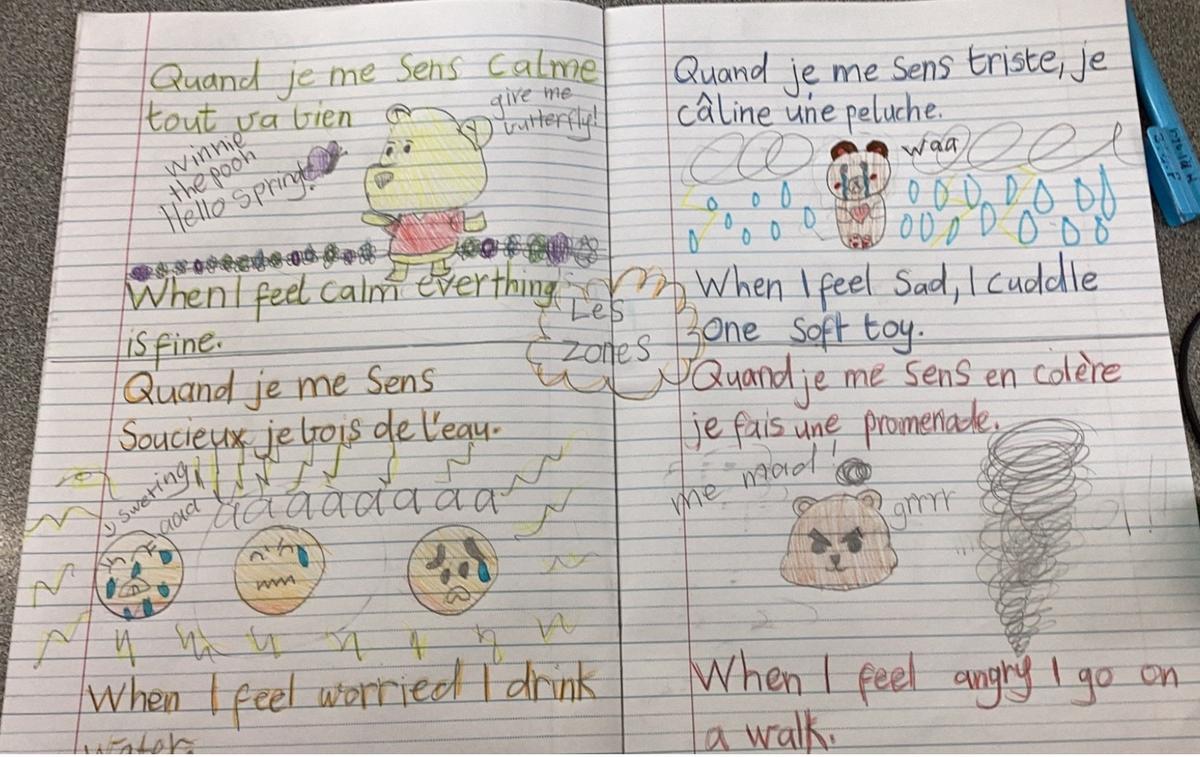 Quand je me sens calme
tout va bien
give me
butterfly!
Winnie
the pooh
Hello Spring!
When I feel calm everthing
is fine.
Quand je me sens triste, je
câline une peluche.
waa
When I feel Sad, I cuddle
One soft toy.
Les
zones
Quand je me sens
Soucieux je bois de l'eau.
y swering!
aad
a a a a a a a a
When I feel worried I drink
water.
Quand je me sens en colère
je fais une promenade.
me mad!
grrrr
When I feel angry I go on
a walk.